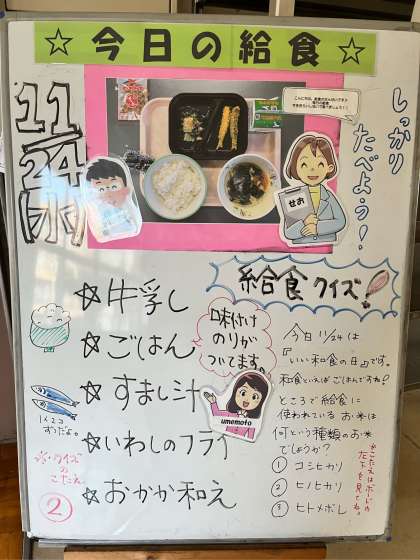 ☆今日の給食☆
11/24(水)
しっかり
たべよう！
せお
☆牛乳
☆ごはん
☆すまし汁
☆いわしのフライ
☆おかか和え
味付け
のりが
ついてます。
umemoto
1人2コ
ずつだよ。
※クイズ
のこたえ
②
給食クイズ！
今日11/24は
『いい和食の日』です。
和食といえばごはんですね！
ところで給食に
使われているお米は
何という種類のお米
でしょうか？
① コシヒカリ
② ヒノヒカリ
③ ヒトメボレ
※こたえはボードの
左下を見てね。